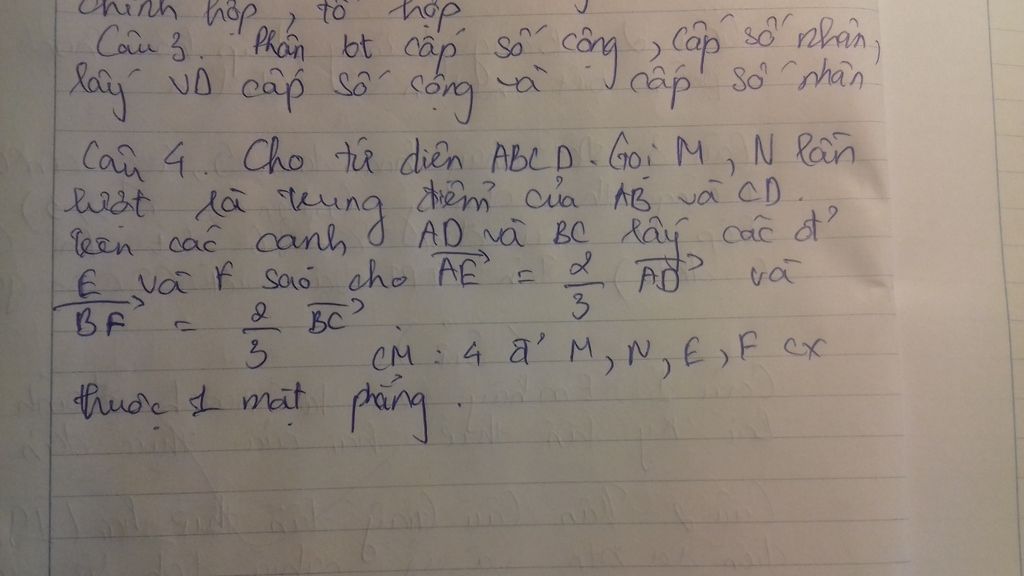 chỉnh hợp, tổ hợp
Câu 3. Phân bt cấp số cộng, cấp số nhân,
lấy VD cấp số cộng và cấp số nhân
Câu 4. Cho tứ diên ABCD. Gọi M, N lần
lượt là trung điểm của AB và CD.
trên các canh AD và BC lấy các đ'
E và F sao cho \overrightarrow{AE} = \frac{2}{3} \overrightarrow{AD} và
\overrightarrow{BF} = \frac{2}{3} \overrightarrow{BC}.
CM : 4 đ' M, N, E, F cx
thuộc 1 mặt phẳng.